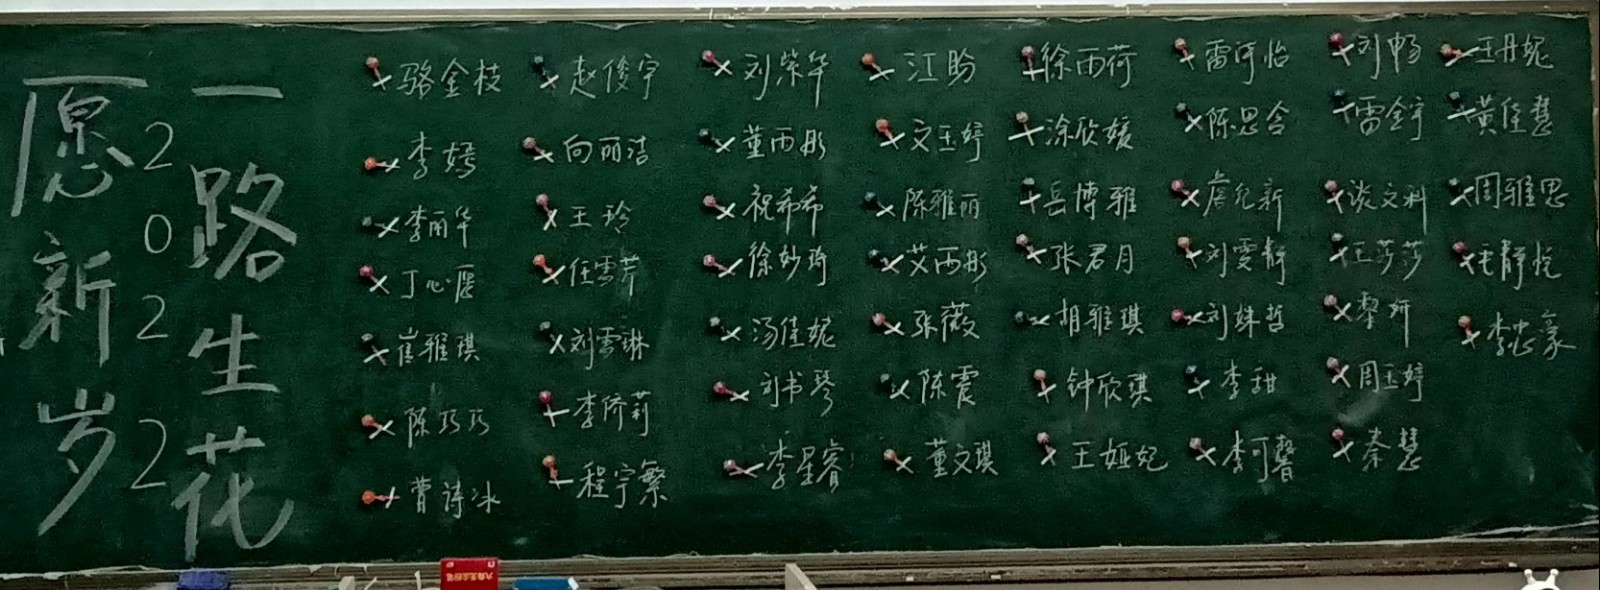 愿新岁
2022
一路生花
骆金枝
李嫣
李雨华
丁心愿
崔雅琪
陈巧巧
曹诗冰
赵俊宇
向丽洁
王玲
任雪芹
刘雪琳
李侨莉
程宇繁
刘荣华
董雨彤
祝希希
徐妙琦
汤佳妮
刘书琴
李星睿
江盼
文玉婷
陈雅丽
艾雨彤
张薇
陈震
董文琪
徐雨荷
涂欣媛
岳博雅
张君月
胡雅琪
钟欣琪
王娅妃
雷阿怡
陈思含
詹纪新
刘雯静
刘姝哲
李甜
李可馨
刘畅
雷金宇
谈文科
王莎莎
黎妍
周玉婷
秦慧
王丹妮
黄佳慧
周雅思
毛静悦
李忠豪